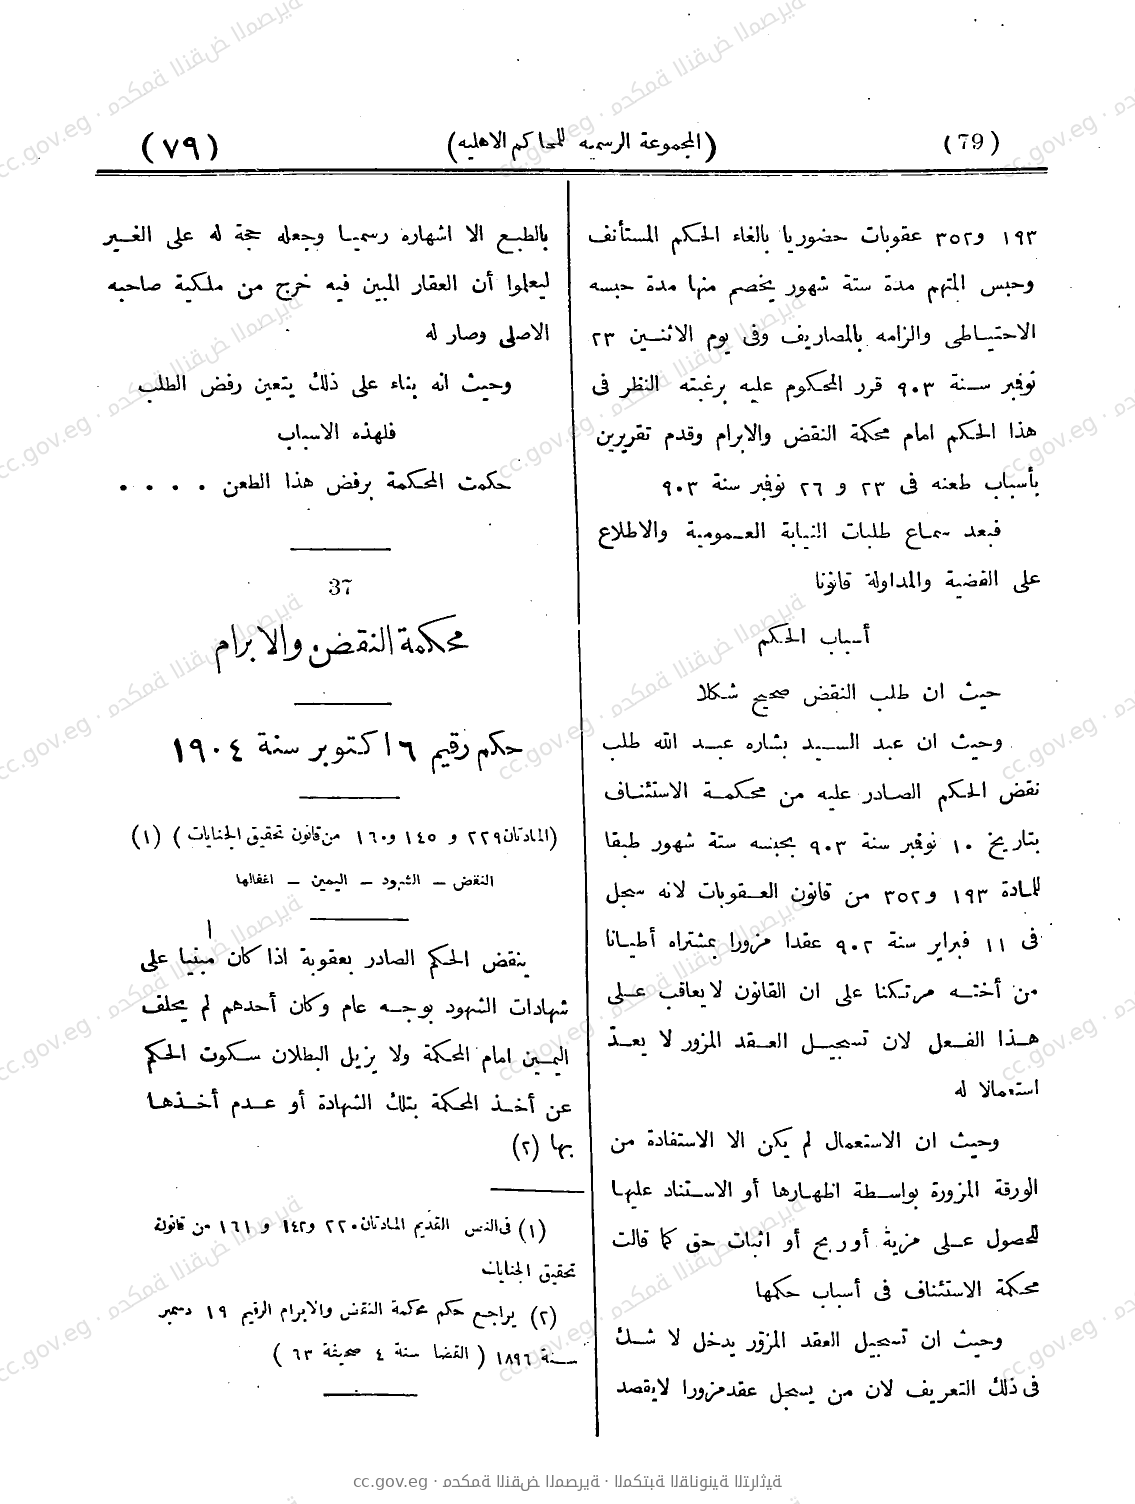 (79) (المجموعة الرسميه للمحاكم الاهليه) (٧٩)
١٩٣ و٣٥٢ عقوبات حضوريا بالغاء الحكم المستأنف
وحبس المتهم مدة ستة شهور يخصم منها مدة حبسه
الاحتياطى والزامه بالمصاريف وفى يوم الاثنين ٢٣
نوفمبر سنة ٩٠٣ قرر المحكوم عليه برغبته النظر فى
هذا الحكم امام محكمة النقض والابرام وقدم تقريرين
بأسباب طعنه فى ٢٣ و ٢٦ نوفمبر سنة ٩٠٣
فبعد سماع طلبات النيابة العمومية والاطلاع
على القضية والمداولة قانونا
أسباب الحكم
حيث ان طلب النقض صحيح شكلا
وحيث ان عبد السيد بشاره عبد الله طلب
نقض الحكم الصادر عليه من محكمة الاستئناف
بتاريخ ١٠ نوفمبر سنة ٩٠٣ بحبسه ستة شهور طبقا
للمادة ١٩٣ و٣٥٢ من قانون العقوبات لانه سجل
فى ١١ فبراير سنة ٩٠٢ عقدا مزورا بمشتراه أطيانا
من أخته مرتكنا على ان القانون لايعاقب على
هذا الفعل لان تسجيل العقد المزور لا يعد
استعمالا له
وحيث ان الاستعمال لم يكن الا الاستفادة من
الورقة المزورة بواسطة اظهارها أو الاستناد عليها
للحصول على مزية أوربح أو اثبات حق كما قالت
محكمة الاستئناف فى أسباب حكمها
وحيث ان تسجيل العقد المزور يدخل لا شك
فى ذلك التعريف لان من يسجل عقدمزورا لايقصد
بالطبع الا اشهاره رسميا وجعله حجة له على الغير
ليعلموا أن العقار المبين فيه خرج من ملكية صاحبه
الاصلى وصار له
وحيث انه بناء على ذلك يتعين رفض الطلب
فلهذه الاسباب
حكمت المحكمة برفض هذا الطعن . . . .
37
محكمة النقض والابرام
حكم رقيم ٦ اكتوبر سنة ١٩٠٤
(المادتان٢٢٩ و ١٤٥ و١٦٠ من قانون تحقيق الجنايات) (١)
النقض — الشهود — اليمين — اغفالها
ينقض الحكم الصادر بعقوبة اذا كان مبنيا على
شهادات الشهود بوجه عام وكان أحدهم لم يحلف
اليمين امام المحكمة ولا يزيل البطلان سكوت الحكم
عن أخذ المحكمة بتلك الشهادة أو عدم أخذها
بها (٢)
(١) فى النص القديم المادتان٢٢٠ و١٤٢ و ١٦١ من قانون
تحقيق الجنايات
(٢) يراجع حكم محكمة النقض والابرام الرقيم ١٩ دسمبر
سنة ١٨٩٦ ( القضا سنة ٤ صحيفة ٦٣ )
cc.gov.eg · محكمة النقض المصرية · المكتبة القانونية التراثية